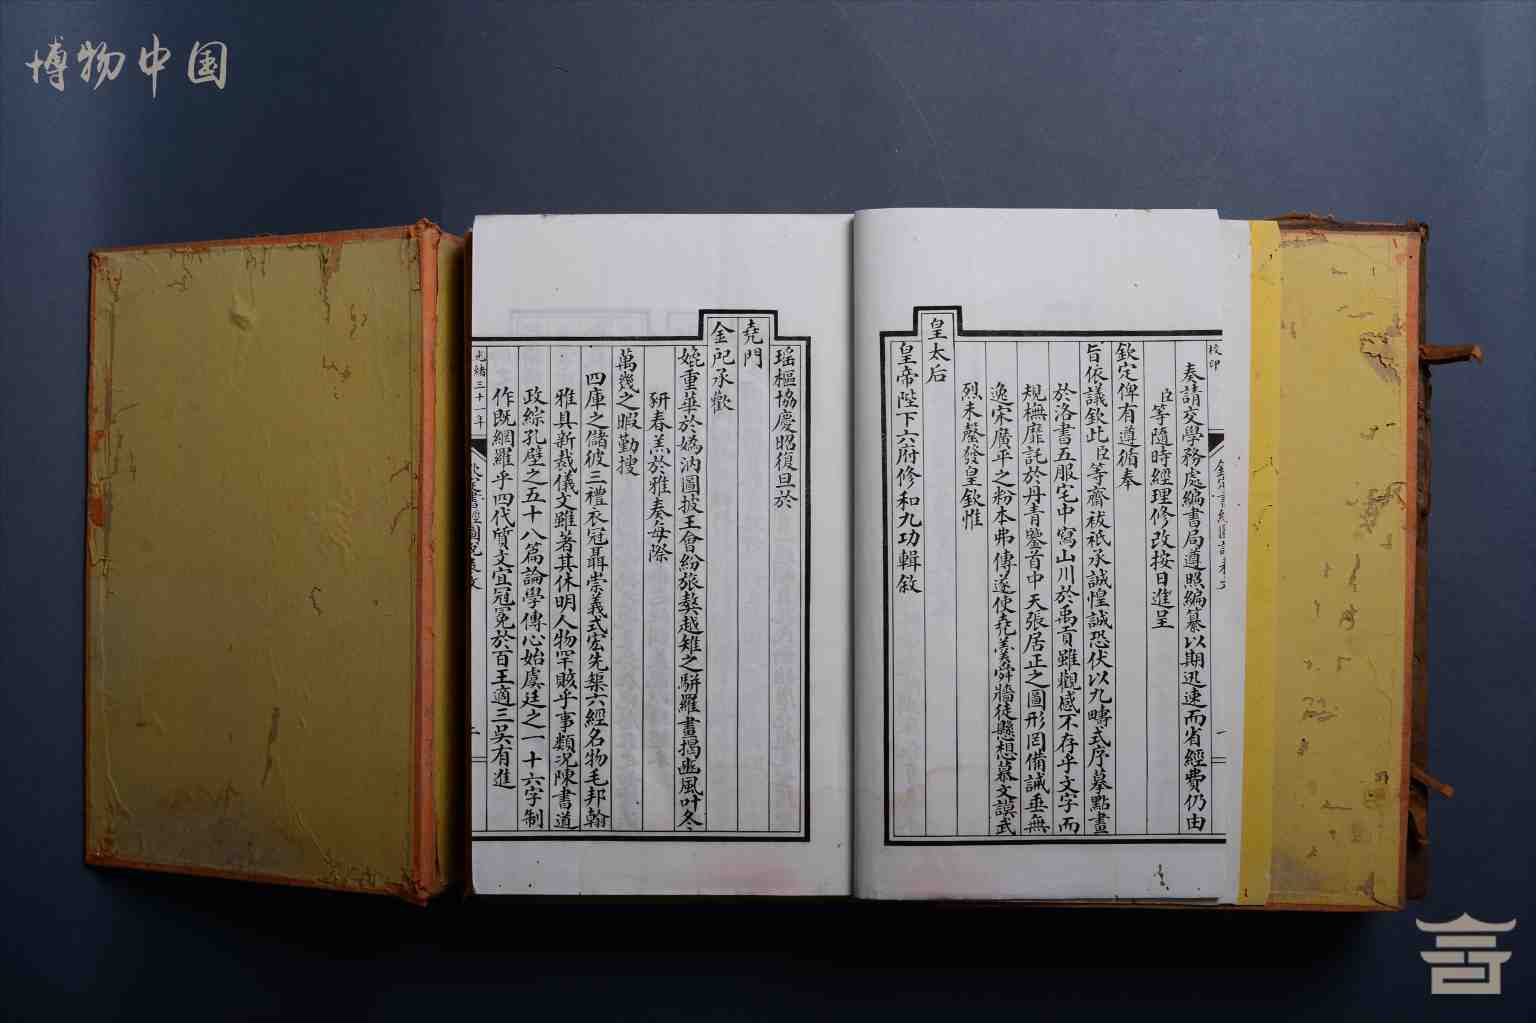 博物中国
奏請交學務處編書局遵照編纂以期迅速而省經費仍由
臣等隨時經理修改按日進呈
欽定俾有遵循奉
旨依議欽此臣等齋祓祇承誠惶誠恐伏以九疇式序摹點畫
於洛書五服宅中寫山川於禹貢雖觀感不存乎文字而
規橅靡託於丹青鑒首中天張居正之圖形罔備誡垂無
逸宋廣平之粉本弗傳遂使堯羹舜牆徒懸想慕文謨武
烈未罄發皇欽惟
皇太后
皇帝陛下六府修和九功輯敘
瑤樞協慶昭復旦於
堯門
金戺承歡
娩重華於媯汭圖披王會紛旅獒越雉之駢羅畫揭豳風叶冬
研春羔於雅奏每際
萬幾之暇勤搜
四庫之儲彼三禮衣冠聶崇義式宏先榘六經名物毛邦翰
雅具新裁儀文雖著其休明人物罕賅乎事類況陳書道
政綜孔壁之五十八篇論學傳心始虞廷之一十六字制
作既網羅乎四代質文宜冠冕於百王適三吳有進
光緒三十一年